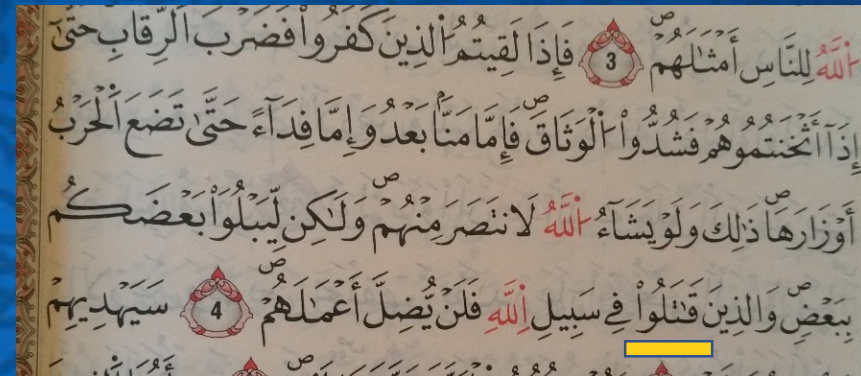 اَ۬للَّهُ لِلنَّاسِ أَمْثَٰلَهُمْۖ 3 فَإِذَا لَقِيتُمُ اُ۬لذِينَ كَفَرُواْ فَضَرْبَ اَ۬لرِّقَابِ حَتَّىٰٓ
إِذَآ أَثْخَنتُمُوهُمْ فَشُدُّواْ اُ۬لْوَثَاقَۖ فَإِمَّا مَنّاَۢ بَعْدُ وَإِمَّا فِدَآءً حَتَّىٰ تَضَعَ اَ۬لْحَرْبُ
أَوْزَارَهَاۖ ذَٰلِكَ وَلَوْ يَشَآءُ اُ۬للَّهُ لَانتَصَرَ مِنْهُمْۖ وَلَٰكِن لِّيَبْلُوَاْ بَعْضَكُم
بِبَعْضٖۖ وَالذِينَ قَٰتَلُواْ فِے سَبِيلِ اِ۬للَّهِ فَلَنْ يُّضِلَّ أَعْمَٰلَهُمْۖ 4 سَيَهْدِيهِمْ